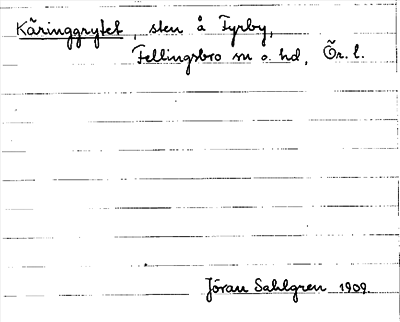 Käringgrytet, sten å Tyrby,
Fellingsbro sn o. hd, Ör. l.
Jöran Sahlgren 1909.